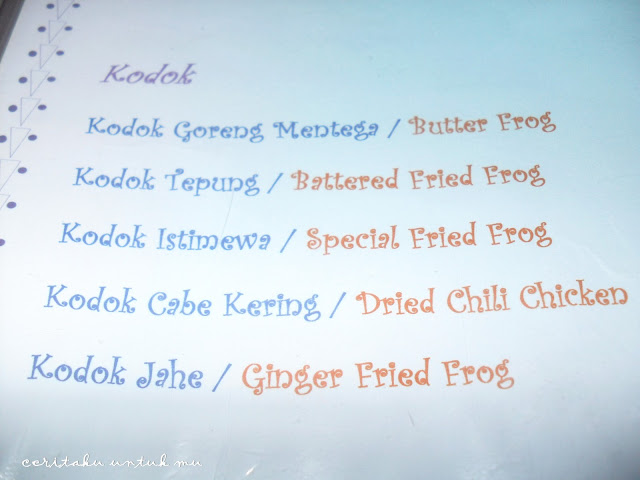 Kodok
Kodok Goreng Mentega / Butter Frog
Kodok Tepung / Battered Fried Frog
Kodok Istimewa / Special Fried Frog
Kodok Cabe Kering / Dried Chili Chicken
Kodok Jahe / Ginger Fried Frog
ceritaku untuk mu